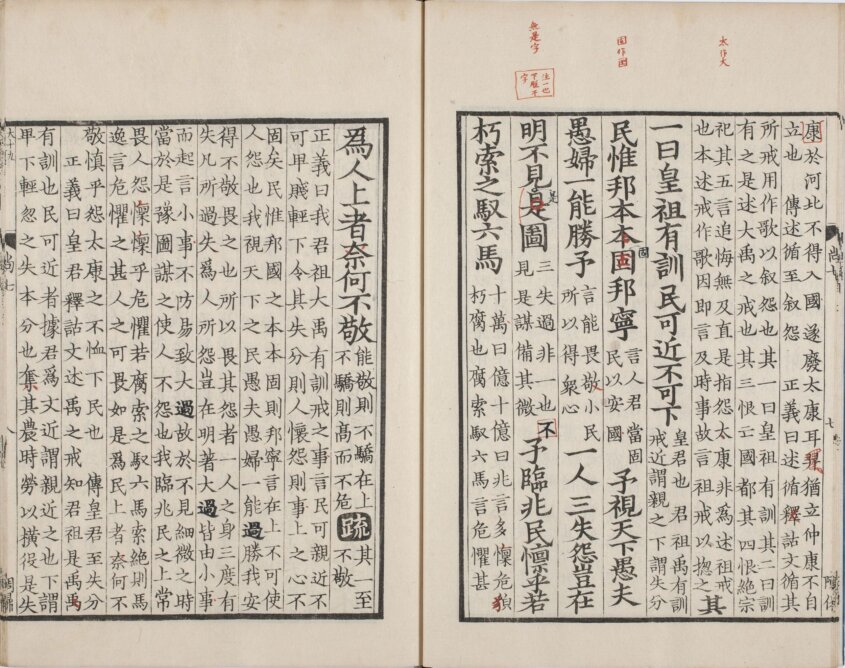 太作大
固作國
無是字
注一也
下脱不
字
康於河北不得入國遂廢太康耳釋猶立仲康不自
立也 傳述循至叙怨 正義曰述循釋詁文循其
所戒用作歌以叙怨也其一曰皇祖有訓其二曰訓
有之是述大禹之戒也其三恨亡國都其四恨絶宗
祀其五言追悔無及直是指怨太康非為述祖戒
也本述戒作歌因即言及時事故言祖戒以揔之 其
一曰皇祖有訓民可近不可下 皇君也君祖禹有訓戒近謂親之下謂失分
民惟邦本本固邦寧 言人君當固民以安國 予視天下愚夫
愚婦一能勝予 言能畏敬小民所以得衆心 一人三失怨豈在
明不見是圖 三失過非一也不見是謀備其微 予臨兆民懍乎若
朽索之馭六馬 十萬曰億十億曰兆言多懍危貌朽腐也腐索馭六馬言危懼甚
為人上者奈何不敬 能敬則不驕在上不驕則髙而不危 疏 其一至不敬
正義曰我君祖大禹有訓戒之事言民可親近不
可卑賤輕下令其失分則人懷怨則事上之心不
固矣民惟邦國之本本固則邦寧言在上不可使
人怨也我視天下之民愚夫愚婦一能過勝我安
得不敬畏之也所以畏其怨者一人之身三度有
失凡所過失為人所怨豈在明著大過皆由小事
而起言小事不防易致大過故於不見細微之時
當於是豫圖謀之使人不怨也我臨兆民之上常
畏人怨懍懍乎危懼若腐索之馭六馬索絶則馬
逸言危懼之甚人之可畏如是為民上者奈何不
敬慎乎怨太康之不恤下民也 傳皇君至失分
正義曰皇君釋詁文述禹之戒知君祖是禹禹
有訓也民可近者據君為文近謂親近之也下謂
卑下輕忽之失本分也奪其農時勞以橫役是失
尚七
八